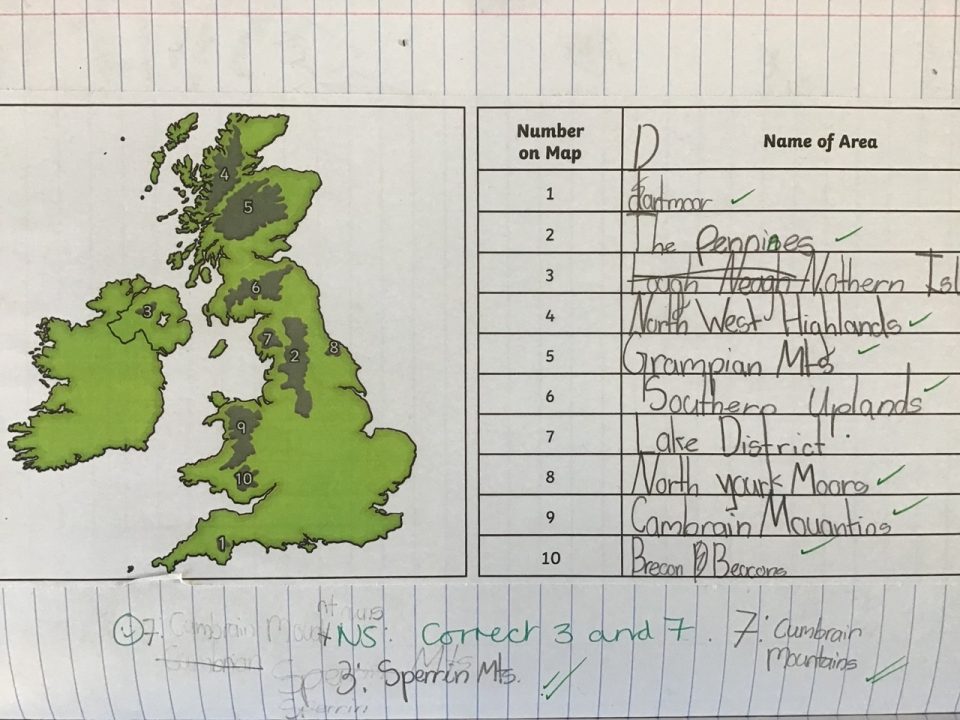 Number
on Map
D
Name of Area
1
dartmoor
2
The Pennines
3
Lough Neagh Nothern Isl
4
North West Highlands
5
Grampian Mts
6
Southern Uplands
7
Lake District
8
North yourk Moors
9
Cambrain Mouantins
10
Brecon Beacons
4
5
6
3
7
2
8
9
10
1
7. Cumbrain Mount
NS: Correct 3 and 7.
7: Cumbrain
Mountains
3: Sperrin Mts.
Sperrin